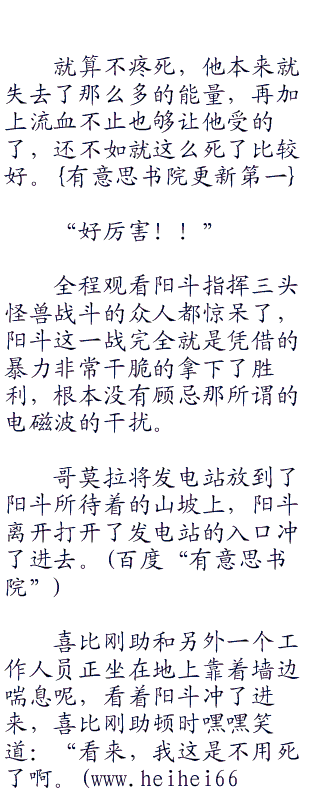 就算不疼死，他本来就
失去了那么多的能量，再加
上流血不止也够让他受的
了，还不如就这么死了比较
好。{有意思书院更新第一}
“好厉害！！”
全程观看阳斗指挥三头
怪兽战斗的众人都惊呆了，
阳斗这一战完全就是凭借的
暴力非常干脆的拿下了胜
利，根本没有顾忌那所谓的
电磁波的干扰。
哥莫拉将发电站放到了
阳斗所待着的山坡上，阳斗
离开打开了发电站的入口冲
了进去。(百度“有意思书
院”)
喜比刚助和另外一个工
作人员正坐在地上靠着墙边
喘息呢，看着阳斗冲了进
来，喜比刚助顿时嘿嘿笑
道：“看来，我这是不用死
了啊。(www.heihei66